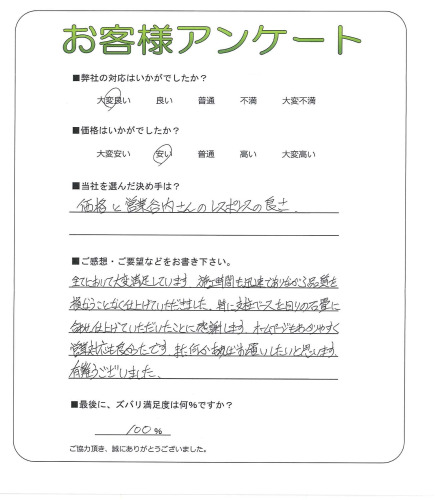 お客様アンケート
■弊社の対応はいかがでしたか?
大変良い 良い 普通 不満 大変不満
■価格はいかがでしたか?
大変安い 安い 普通 高い 大変高い
■当社を選んだ決め手は?
価格と営業谷内さんのレスポンスの良さ.
■ご感想・ご要望などをお書き下さい。
全てにおいて大変満足しています. 施工時間も迅速でありながら品質を
損なうことなく仕上げていただきました. 特に支柱ベースを回りの石畳に
合わせ仕上げていただいたことに感謝します. ホームページもわかりやすく
営業対応も良かったです. また何かあればお願いしたいと思います.
有難うございました.
■最後に、ズバリ満足度は何%ですか?
100 %
ご協力頂き、誠にありがとうございました。